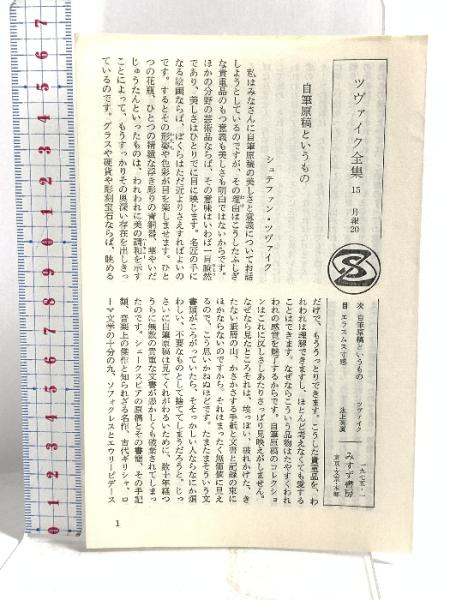 ツヴァイク全集 15 月報20
自筆原稿というもの
シュテファン・ツヴァイク
私はみなさんに自筆原稿の美しさと意義についてお話
しようとしているのですが、その理由はこうしたふしぎ
な貴重品のもつ意義も美しさも明白ではないからです。
ほかの分野の芸術品ならば、その意味はいわば一目瞭然
であり、美しさはひとりでに目に映じます。名匠の手に
なる絵画ならば、ぼくらはただ近よりさえすればよいの
です。するとその形姿や色彩が目を楽しませます。ひと
つの花瓶、ひとつの精緻な浮き彫りの青銅器、華やいだ
じゅうたんといったものは、われわれに美の調和を示す
ことによって、もうすっかりその奥深い存在を出しきっ
ているのです。グラスや硬貨や彫刻宝石ならば、眺める
次 自筆原稿というもの ツヴァイク
目 エラスムスて感 池上英廣
一九七五・一
みすず書房
東京・文京・本郷
だけで、もううっとりできます。こうした貴重品を、わ
れわれは理解できますし、ほとんど考えなくても愛する
ことはできます。なぜならこういう品物はたやすくわれ
われの感覚を魅了するからです。自筆原稿のコレクショ
ンはこれに反しさしあたりさっぱり見映えがしません。
なぜなら見たところそれは、埃っぽい、破れかけた、き
たない紙屑の山、かさかさする手紙と文書と記録の束に
ほかならないのですから、それはまったく無価値に見え
るので、こう思いかねぬほどです。たまたまそういう文
書類がころがっていたら、そそっかしい人ならなにか煩
わしい、不要なものとして捨ててしまうだろうと。じっ
さいに自筆原稿は見てくれがわるいために、数十年経つ
うちに無数の貴重な文書が愚かしくも破棄されてしまっ
たのです。シェークスピアの原稿とその書簡、その手記
類、音楽上の傑作と知られざる名作、古代ギリシャ、ロ
ーマ文学の十分の九、ソフォクレスとエウリーピデース
1